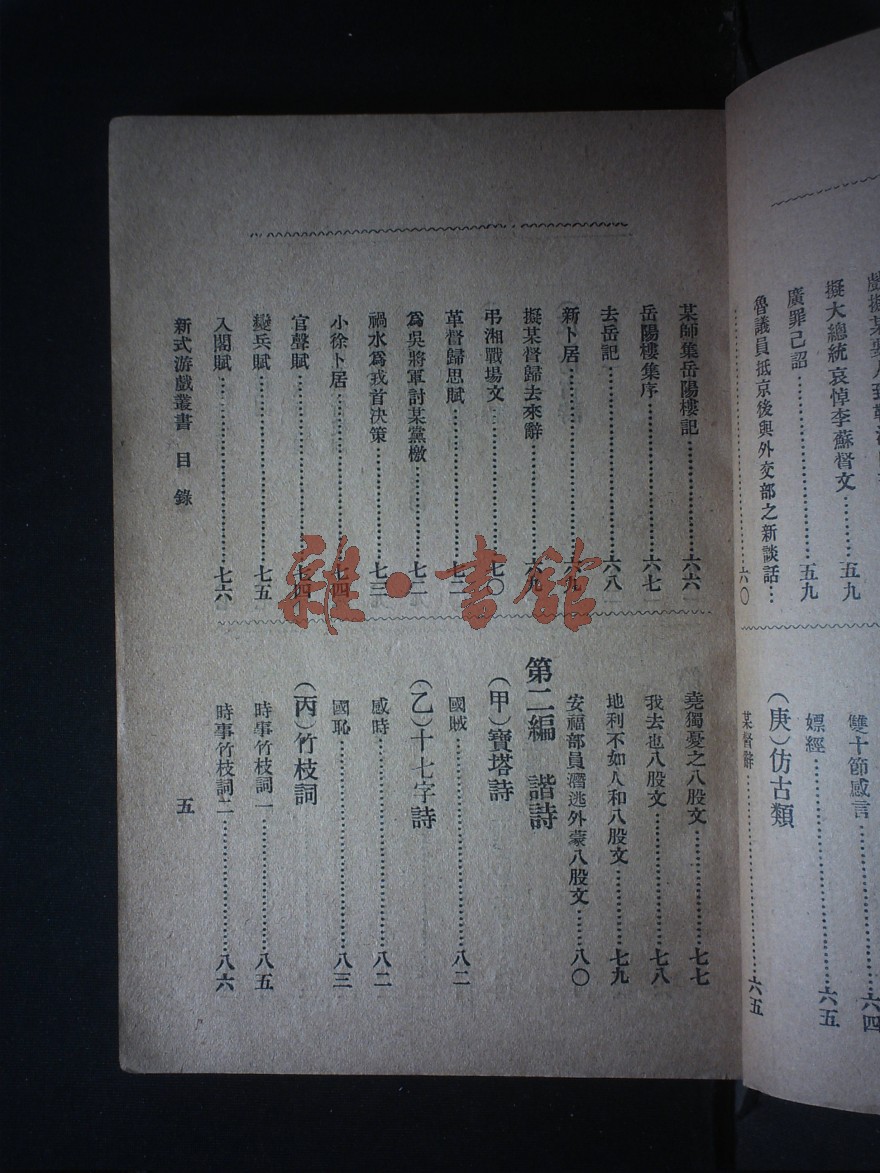 擬大總統哀悼李蘇督文………五九
廣罪己詔………五九
魯議員抵京後與外交部之新談話…
………六〇
雙十節感言………六四
嫖經………六五
（庚）仿古類
某督辭………六五
某師集岳陽樓記………六六
岳陽樓集序………六七
去岳記………六八
新卜居………六九
擬某督歸去來辭………六九
弔湘戰場文………七〇
革督歸思賦………七二
爲吳將軍討某黨檄………七二
禍水爲戎首決策………七三
小徐卜居………七四
官聲賦………七四
變兵賦………七五
入閣賦………七六
堯獨憂之八股文………七七
我去也八股文………七八
地利不如人和八股文………七九
安福部員潛逃外蒙八股文………八〇
第二編　諧詩
（甲）寶塔詩
國賊………八二
（乙）十七字詩
感時………八二
國恥………八三
（丙）竹枝詞
時事竹枝詞一………八五
時事竹枝詞二………八六
新式游戲叢書　目錄
五
雜·書館